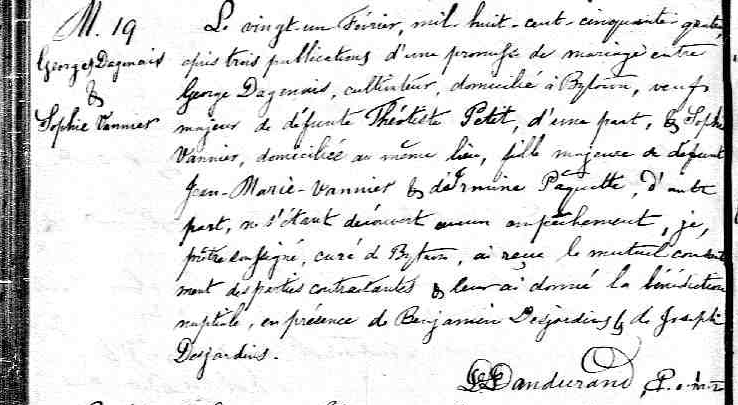 M. 19
Georges Dagenais
&
Sophie Vannier
Le vingt-un Février, mil-huit-cent-cinquante-quatre,
après trois publications d'une promesse de mariage entre
George Dagenais, cultivateur, domicilié à Bytown, veuf
majeur de défunte Théotiste Petit, d'une part, & Sophie
Vannier, domiciliée au même lieu, fille majeure de défunt
Jean-Marie-Vannier & de Irmine Paquette, d'autre
part, ne s'étant découvert aucun empêchement, je,
prêtre soussigné, curé de Bytown, ai reçu le mutuel consente
ment des parties contractantes & leur ai donné la bénédiction
nuptiale, en présence de Benjamin Desjardins & de Joseph
Desjardins.
Dandurand